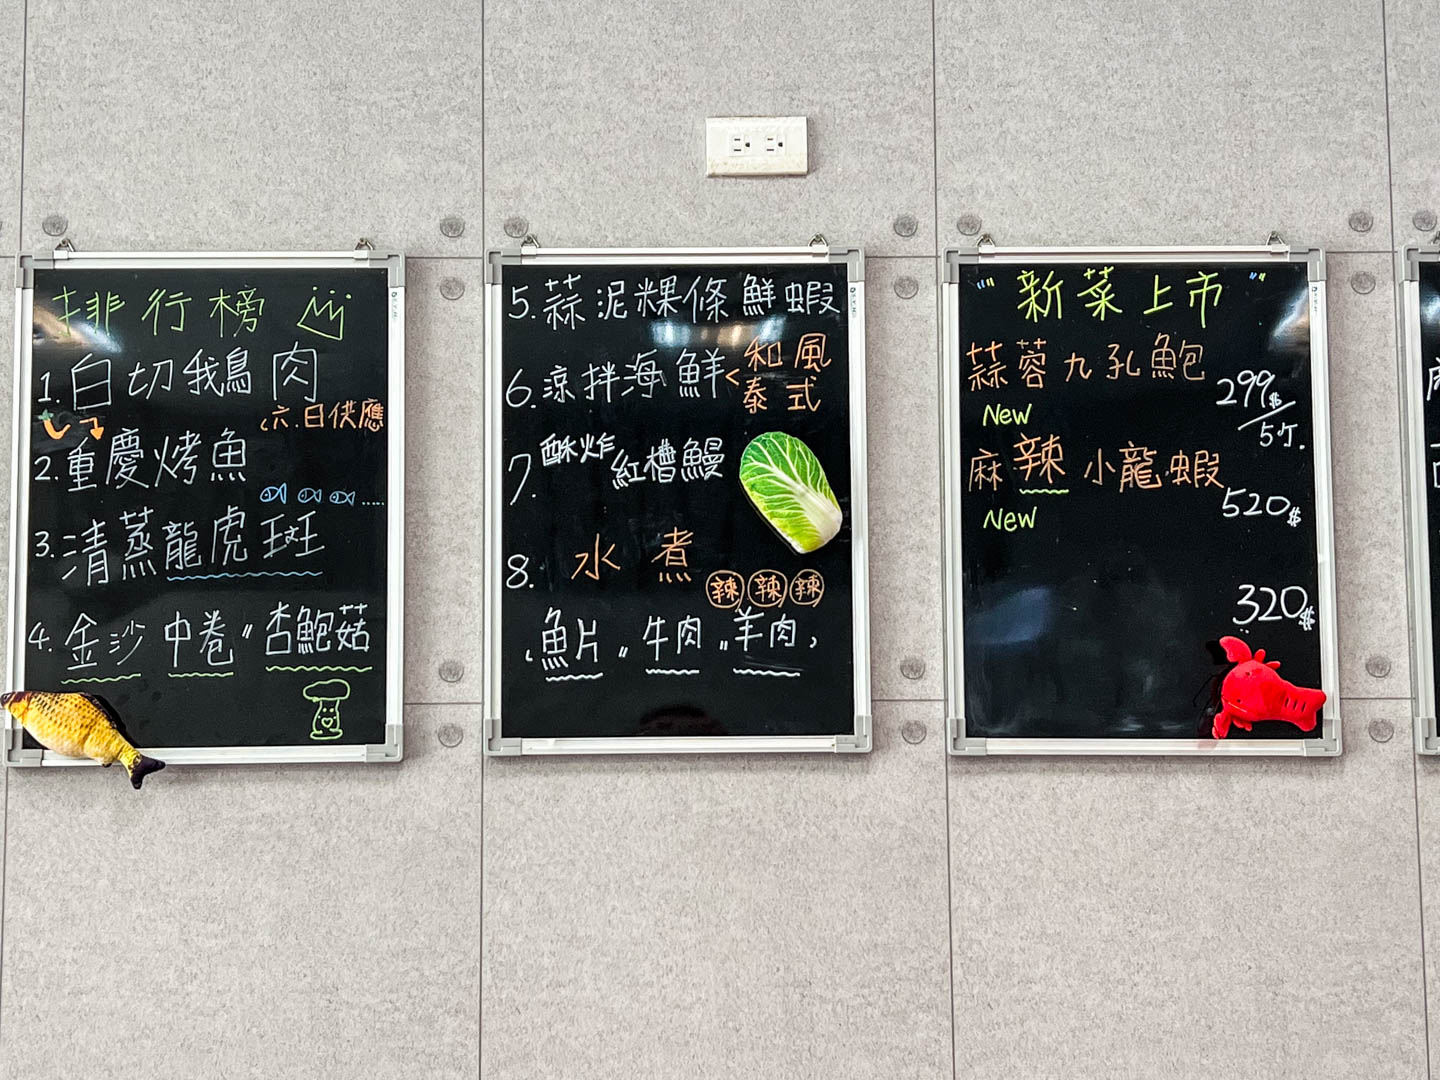 排行榜
1. 白切鵝肉
六.日供應
2. 重慶烤魚
3. 清蒸龍虎斑
4. 金沙 中卷 " 杏鮑菇
5. 蒜泥粿條鮮蝦
6. 涼拌海鮮 < 和風 泰式
7. 酥炸 紅槽鰻
8. 水煮
辣 辣 辣
、魚片 " 牛肉 " 羊肉,
"新菜上市"
蒜蓉九孔鮑
New
299$/5个.
麻辣小龍蝦
New
520$
320$